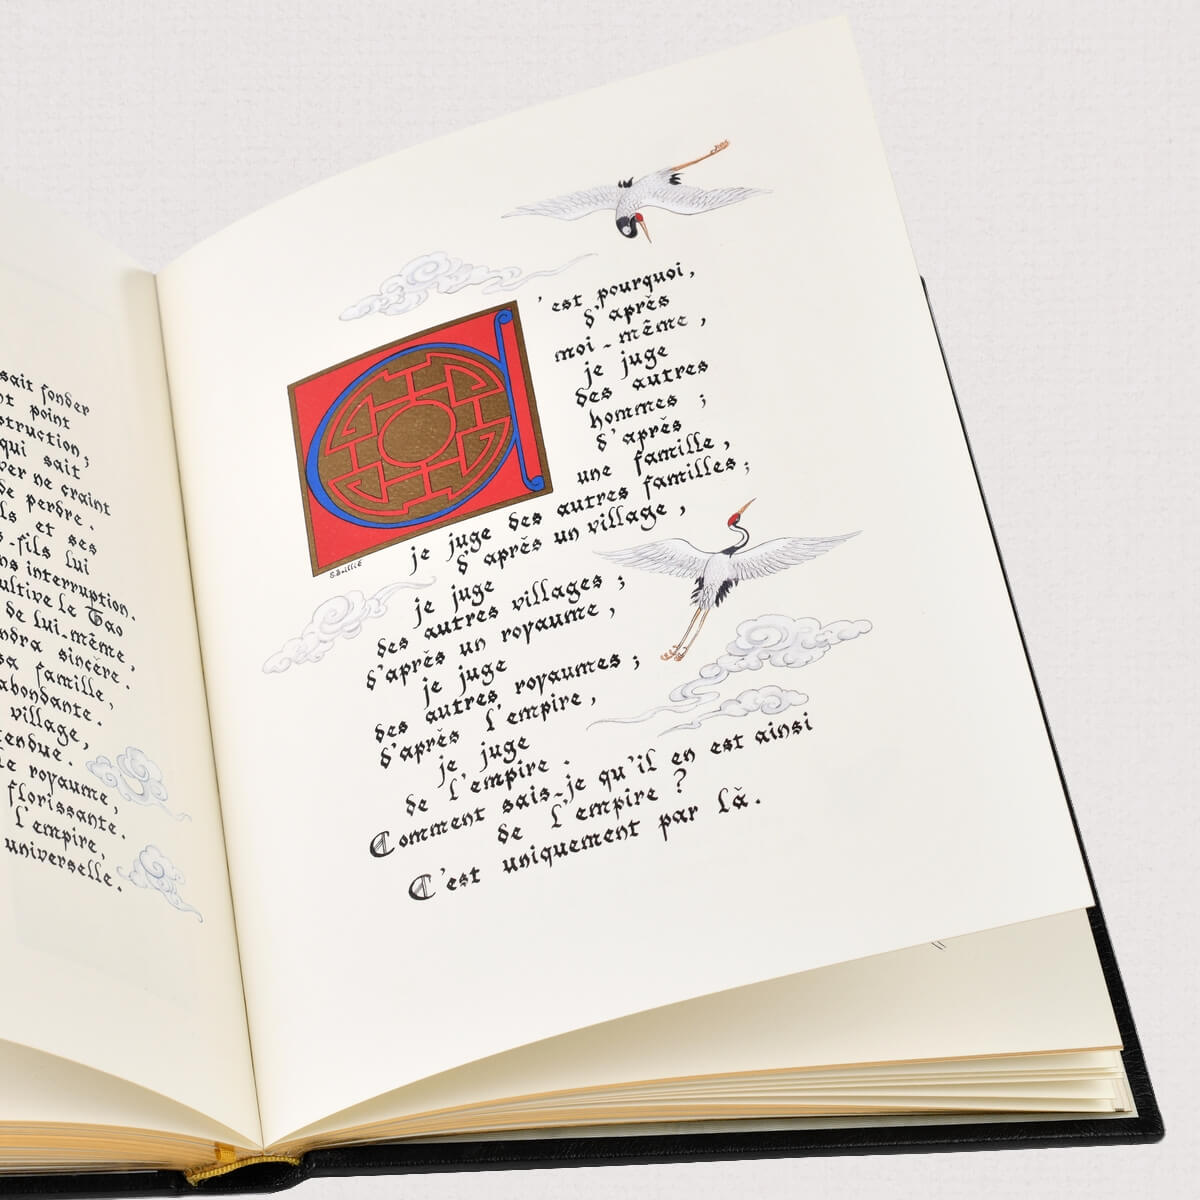 sait fonder
point
struction,
qui sait
ne craint
de perdre.
et ses
fils lui
interruption.
cultive le Tao
de lui-même,
sincère.
sa famille,
abondante.
village,
royaume,
florissante.
l'empire,
universelle.
C'est pourquoi,
d'après
moi-même,
je juge
des autres
hommes ;
d'après
une famille,
je juge des autres familles ;
d'après un village,
je juge
des autres villages ;
d'après un royaume,
je juge
des autres royaumes ;
d'après l'empire,
je juge
de l'empire.
Comment sais-je qu'il en est ainsi
de l'empire ?
C'est uniquement par là.